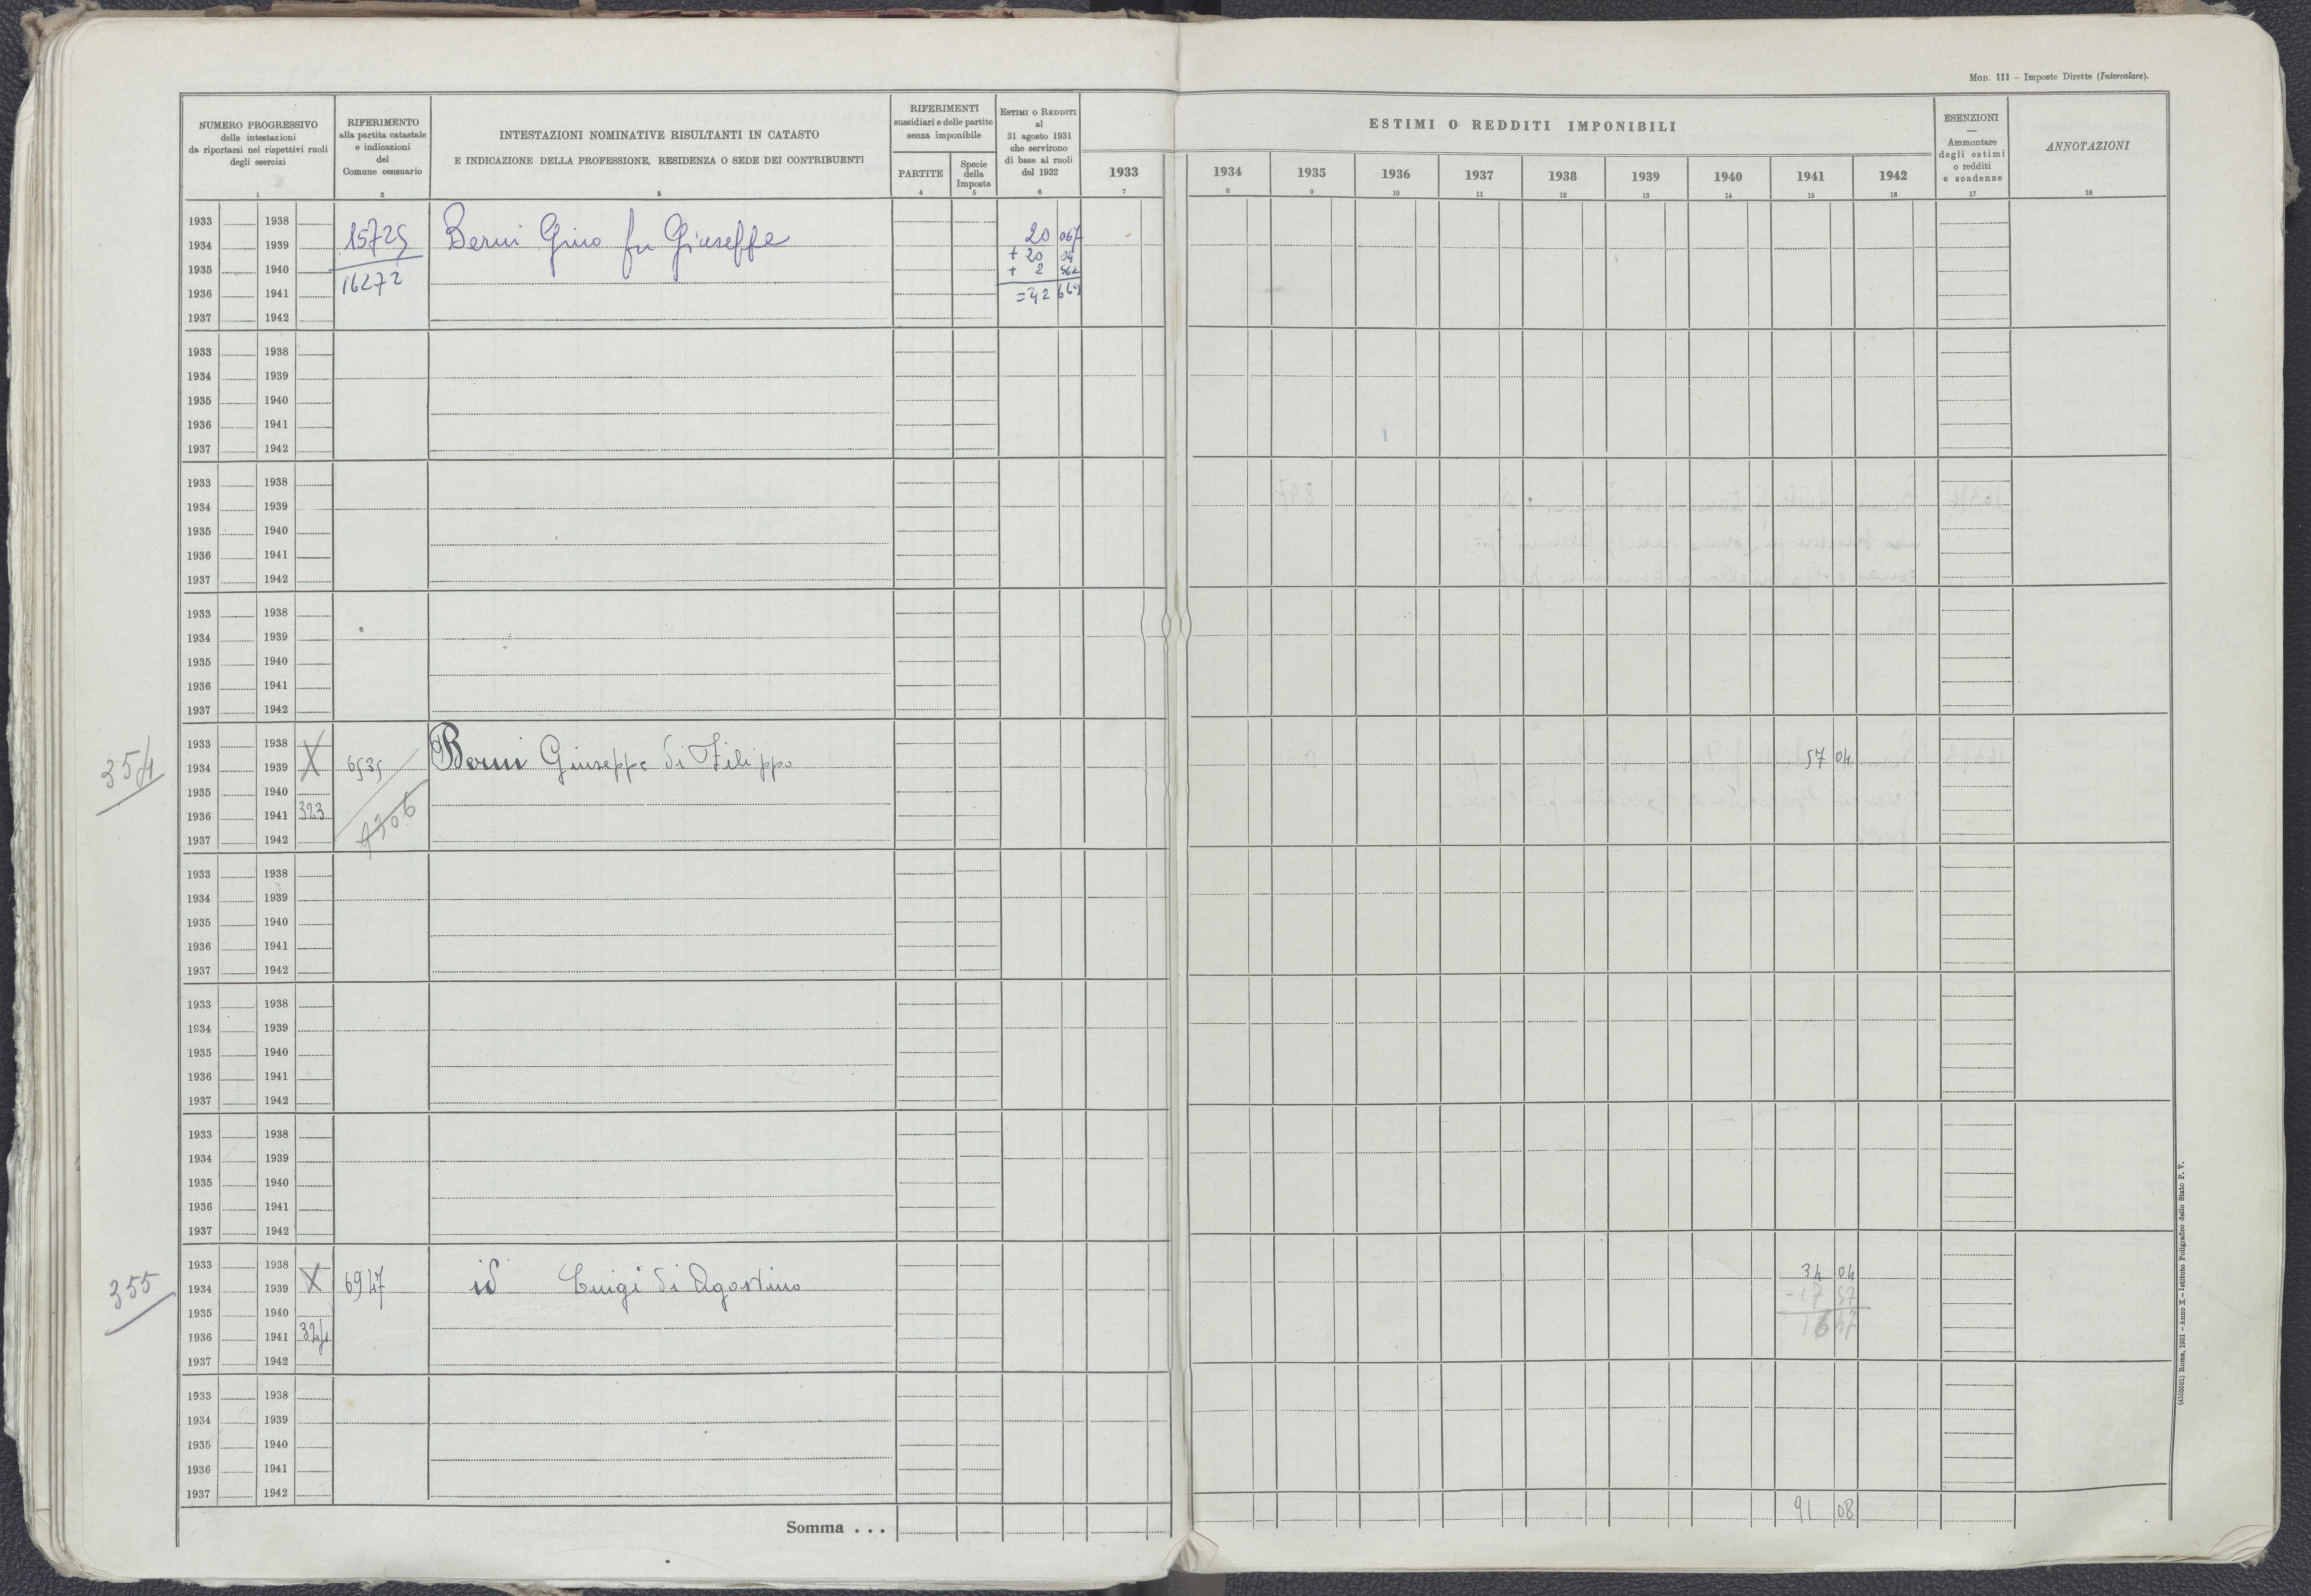 Mod. 111 – Imposte Dirette (Intercalare).
NUMERO PROGRESSIVO
delle intestazioni
da riportarsi nei rispettivi ruoli
degli esercizi
1
RIFERIMENTO
alla partita catastale
e indicazioni
del
Comune censuario
2
INTESTAZIONI NOMINATIVE RISULTANTI IN CATASTO
E INDICAZIONE DELLA PROFESSIONE, RESIDENZA O SEDE DEI CONTRIBUENTI
3
RIFERIMENTI
sussidiari e delle partite
senza imponibile
PARTITE
4
Specie
della
Imposta
5
Estimi o Redditi
al
31 agosto 1931
che servirono
di base ai ruoli
del 1932
6
ESTIMI O REDDITI IMPONIBILI
1933 1934 1935 1936 1937 1938 1939 1940 1941 1942
7 8 9 10 11 12 13 14 15 16
ESENZIONI
—
Ammontare
degli estimi
o redditi
e scadenze
17
ANNOTAZIONI
18
1933 1938
1934 1939 15725 Berni Gino fu Giuseppe 20 067
+ 20 04
1935 1940 16272 + 2 562
1936 1941 = 42 669
1937 1942
1933 1938
1934 1939
1935 1940
1936 1941
1937 1942
1933 1938
1934 1939
1935 1940
1936 1941
1937 1942
1933 1938
1934 1939
1935 1940
1936 1941
1937 1942
1933 1938 X
354 1934 1939 6535 Berni Giuseppe di Filippo 57 04
1935 1940
1936 1941 323
1937 1942
1933 1938
1934 1939
1935 1940
1936 1941
1937 1942
1933 1938
1934 1939
1935 1940
1936 1941
1937 1942
1933 1938
1934 1939
1935 1940
1936 1941
1937 1942
1933 1938 X 34 04
355 1934 1939 6947 id Luigi di Agostino - 17 57
1935 1940 16 47
1936 1941 324
1937 1942
1933 1938
1934 1939
1935 1940
1936 1941
1937 1942
Somma . . . 91 08
(4103621) Roma, 1931 – Anno X – Istituto Poligrafico dello Stato P. V.